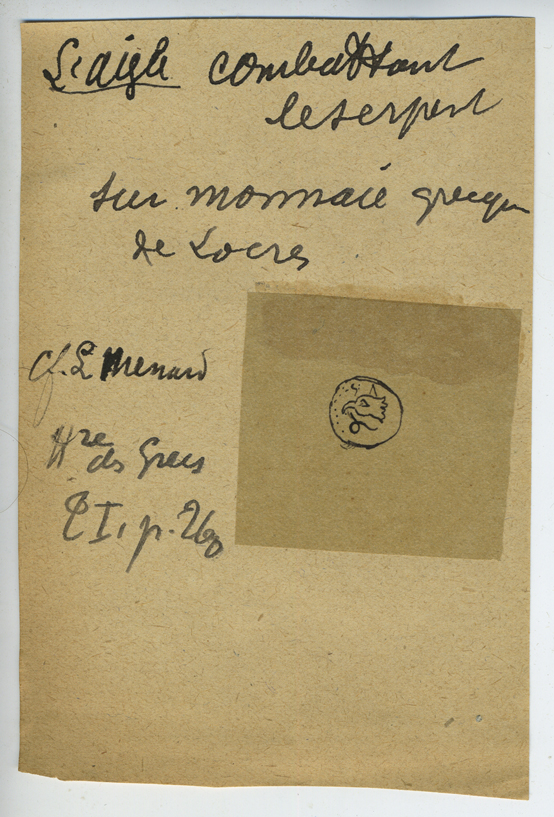 L'aigle combattant
le serpent
sur monnaie grecque
de Locres
cf. L Menard
Hre
des Grecs
T I, p.